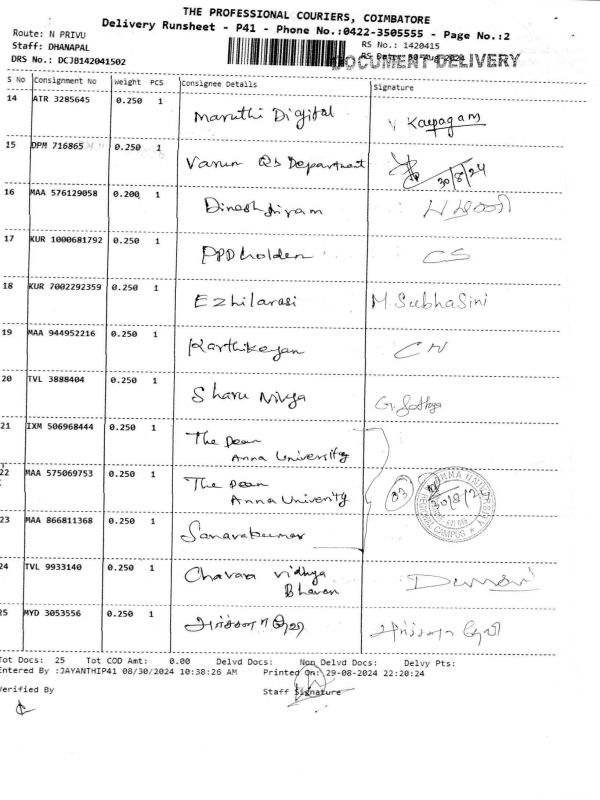 THE PROFESSIONAL COURIERS, COIMBATORE
Delivery Runsheet - P41 - Phone No.:0422-3505555 - Page No.:2
Route: N PRIVU
Staff: DHANAPAL
DRS No.: DCJB142041502
RS No.: 1420415
DOCUMENT DELIVERY
S No Consignment No Weight PCS Consignee Details Signature
14 ATR 3285645 0.250 1 Maruthi Digital Karpagam
15 DPM 716865 0.250 1 Varun Department 30/8/24
16 MAA 576129058 0.200 1 Dinesh
17 KUR 1000681792 0.250 1 PPD holden CS
18 KUR 7002292359 0.250 1 Ezhilarasi M. Subhasini
19 MAA 944952216 0.250 1 Karthikeyan CN
20 TVL 3888404 0.250 1 Sharu Nivya G. Sathya
21 IXM 506968444 0.250 1 The Dean
Anna University
22 MAA 575069753 0.250 1 The Dean
Anna Univerity 83 30/8/24
ANNA UNIVERSITY REGIONAL CAMPUS
23 MAA 866811368 0.250 1 Saravakumar
24 TVL 9933140 0.250 1 Chavara vidhya
Bhavan
25 MYD 3053556 0.250 1 அர்ச்சனா தேவி அர்ச்சனா தேவி
Tot Docs: 25 Tot COD Amt: 0.00 Delvd Docs: Non Delvd Docs: Delvy Pts:
Entered By :JAYANTHIP41 08/30/2024 10:38:26 AM Printed On: 29-08-2024 22:20:24
Verified By Staff Signature